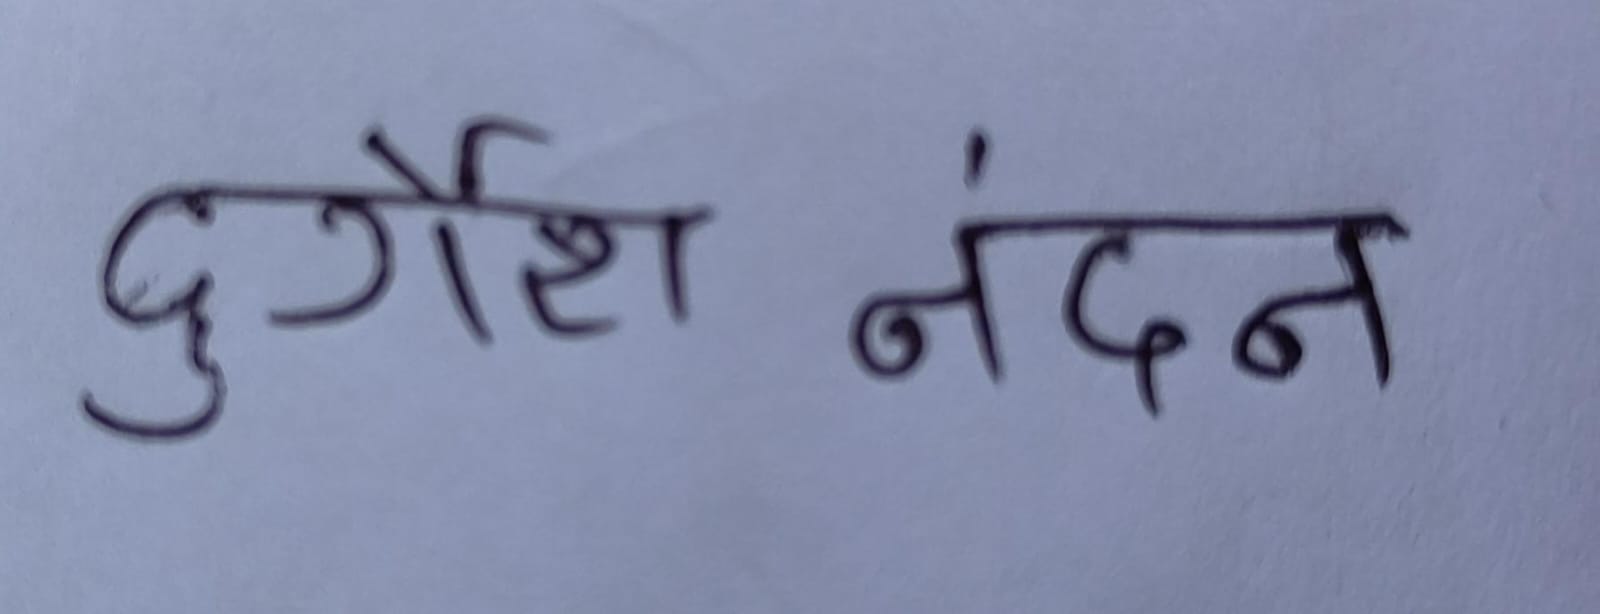 दुर्गेश नंदन